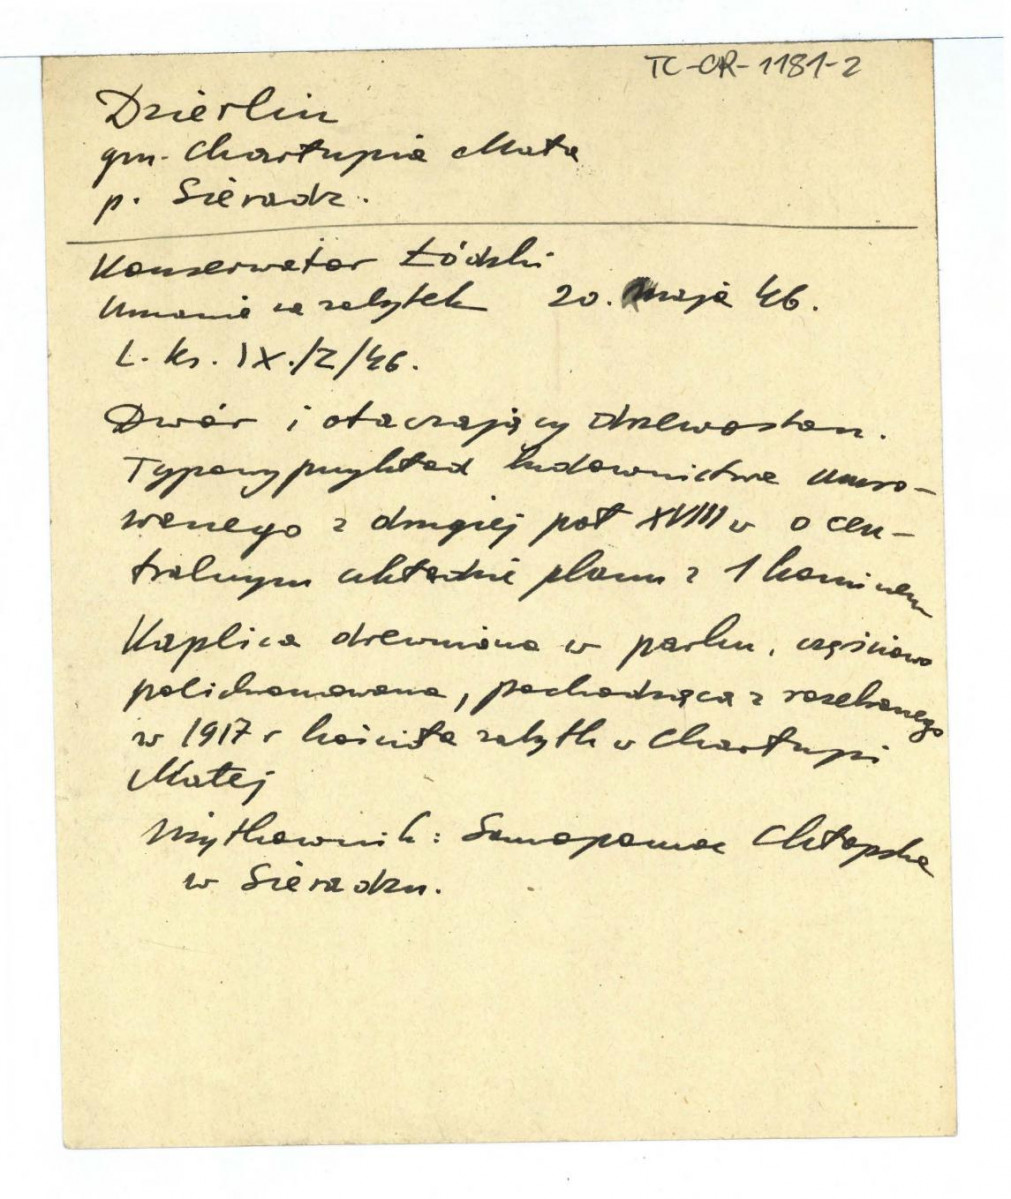 TC-CR-1181-2
Dzierlin
gm. Charłupia Mała
p. Sieradz.
Konserwator Łódzki
Uznanie za zabytek 20. maja 46.
L. ks. IX./Z/46.
Dwór i otaczający drzewostan.
Typowy przykład budownictwa muro-
wanego z drugiej poł XVIII w o cen-
tralnym układzie planu z 1 kominem
Kaplica drewniana w parku, częściowo
polichromowana, pochodząca z rozebranego
w 1917 r kościoła zabytk w Charłupi
Małej
Użytkownik: Samopomoc Chłopska
w Sieradzu.